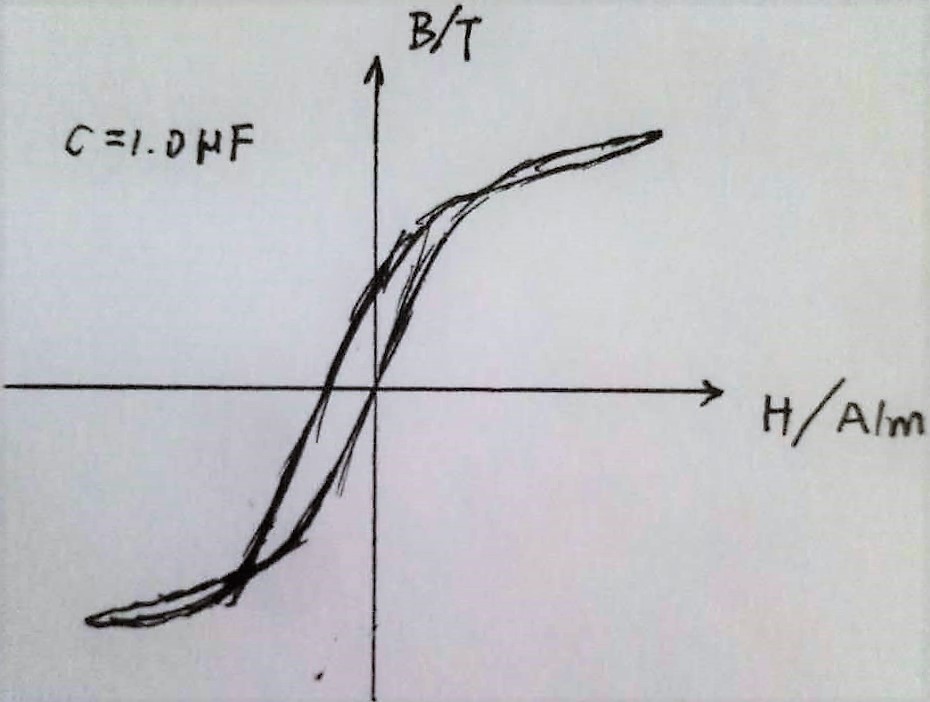 B/T
C=1.0μF
H/A/m